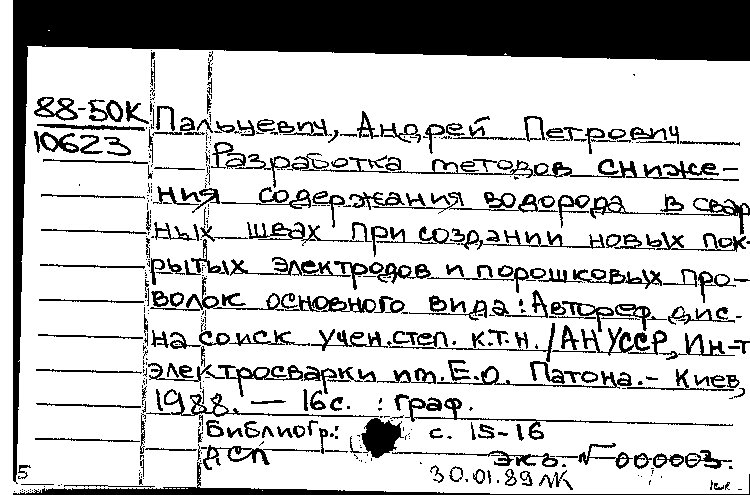 88-50К
10623
Пальцевич, Андрей Петрович
Разработка методов сниже-
ния содержания водорода в свар
ных швах при создании новых пок-
рытых электродов и порошковых про-
волок основного вида: Автореф. дис.
на соиск учен. степ. к.т.н. / АН УССР, Ин-т
электросварки им. Е.О. Патона. - Киев,
1988. — 16 с. : граф.
Библиогр.: с. 15-16
ДСП экз. № 000003.
30.01.89 ЛК
5